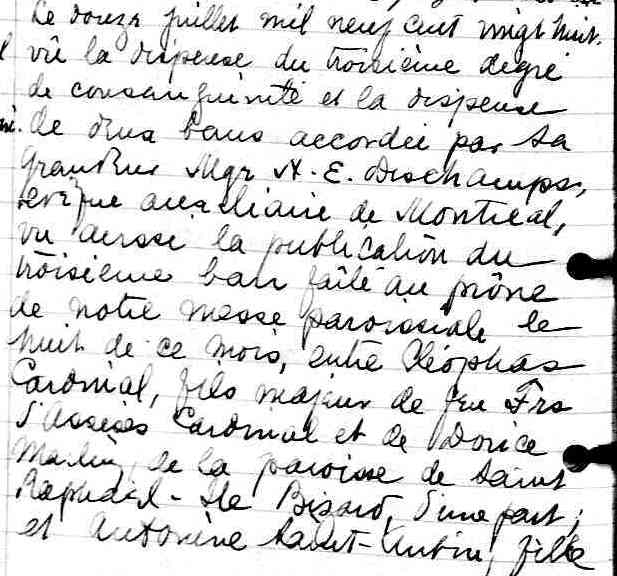 Le douze juillet mil neuf cent vingt huit.
vu la dispense du troisième degré
de consanguinité et la dispense
de deux bans accordée par Sa
Grandeur Mgr A. E. Deschamps,
evêque auxiliaire de Montreal,
vu aussi la publication du
troisième ban faite au prône
de notre messe paroissiale le
huit de ce mois, entre Cléophas
Cardinal, fils majeur de feu Frs
d'Assises Cardinal et de Dorice
de la paroisse de Saint
Raphael - Ile Bizard, d'une part;
et Antonine Saint-Aubin, fille